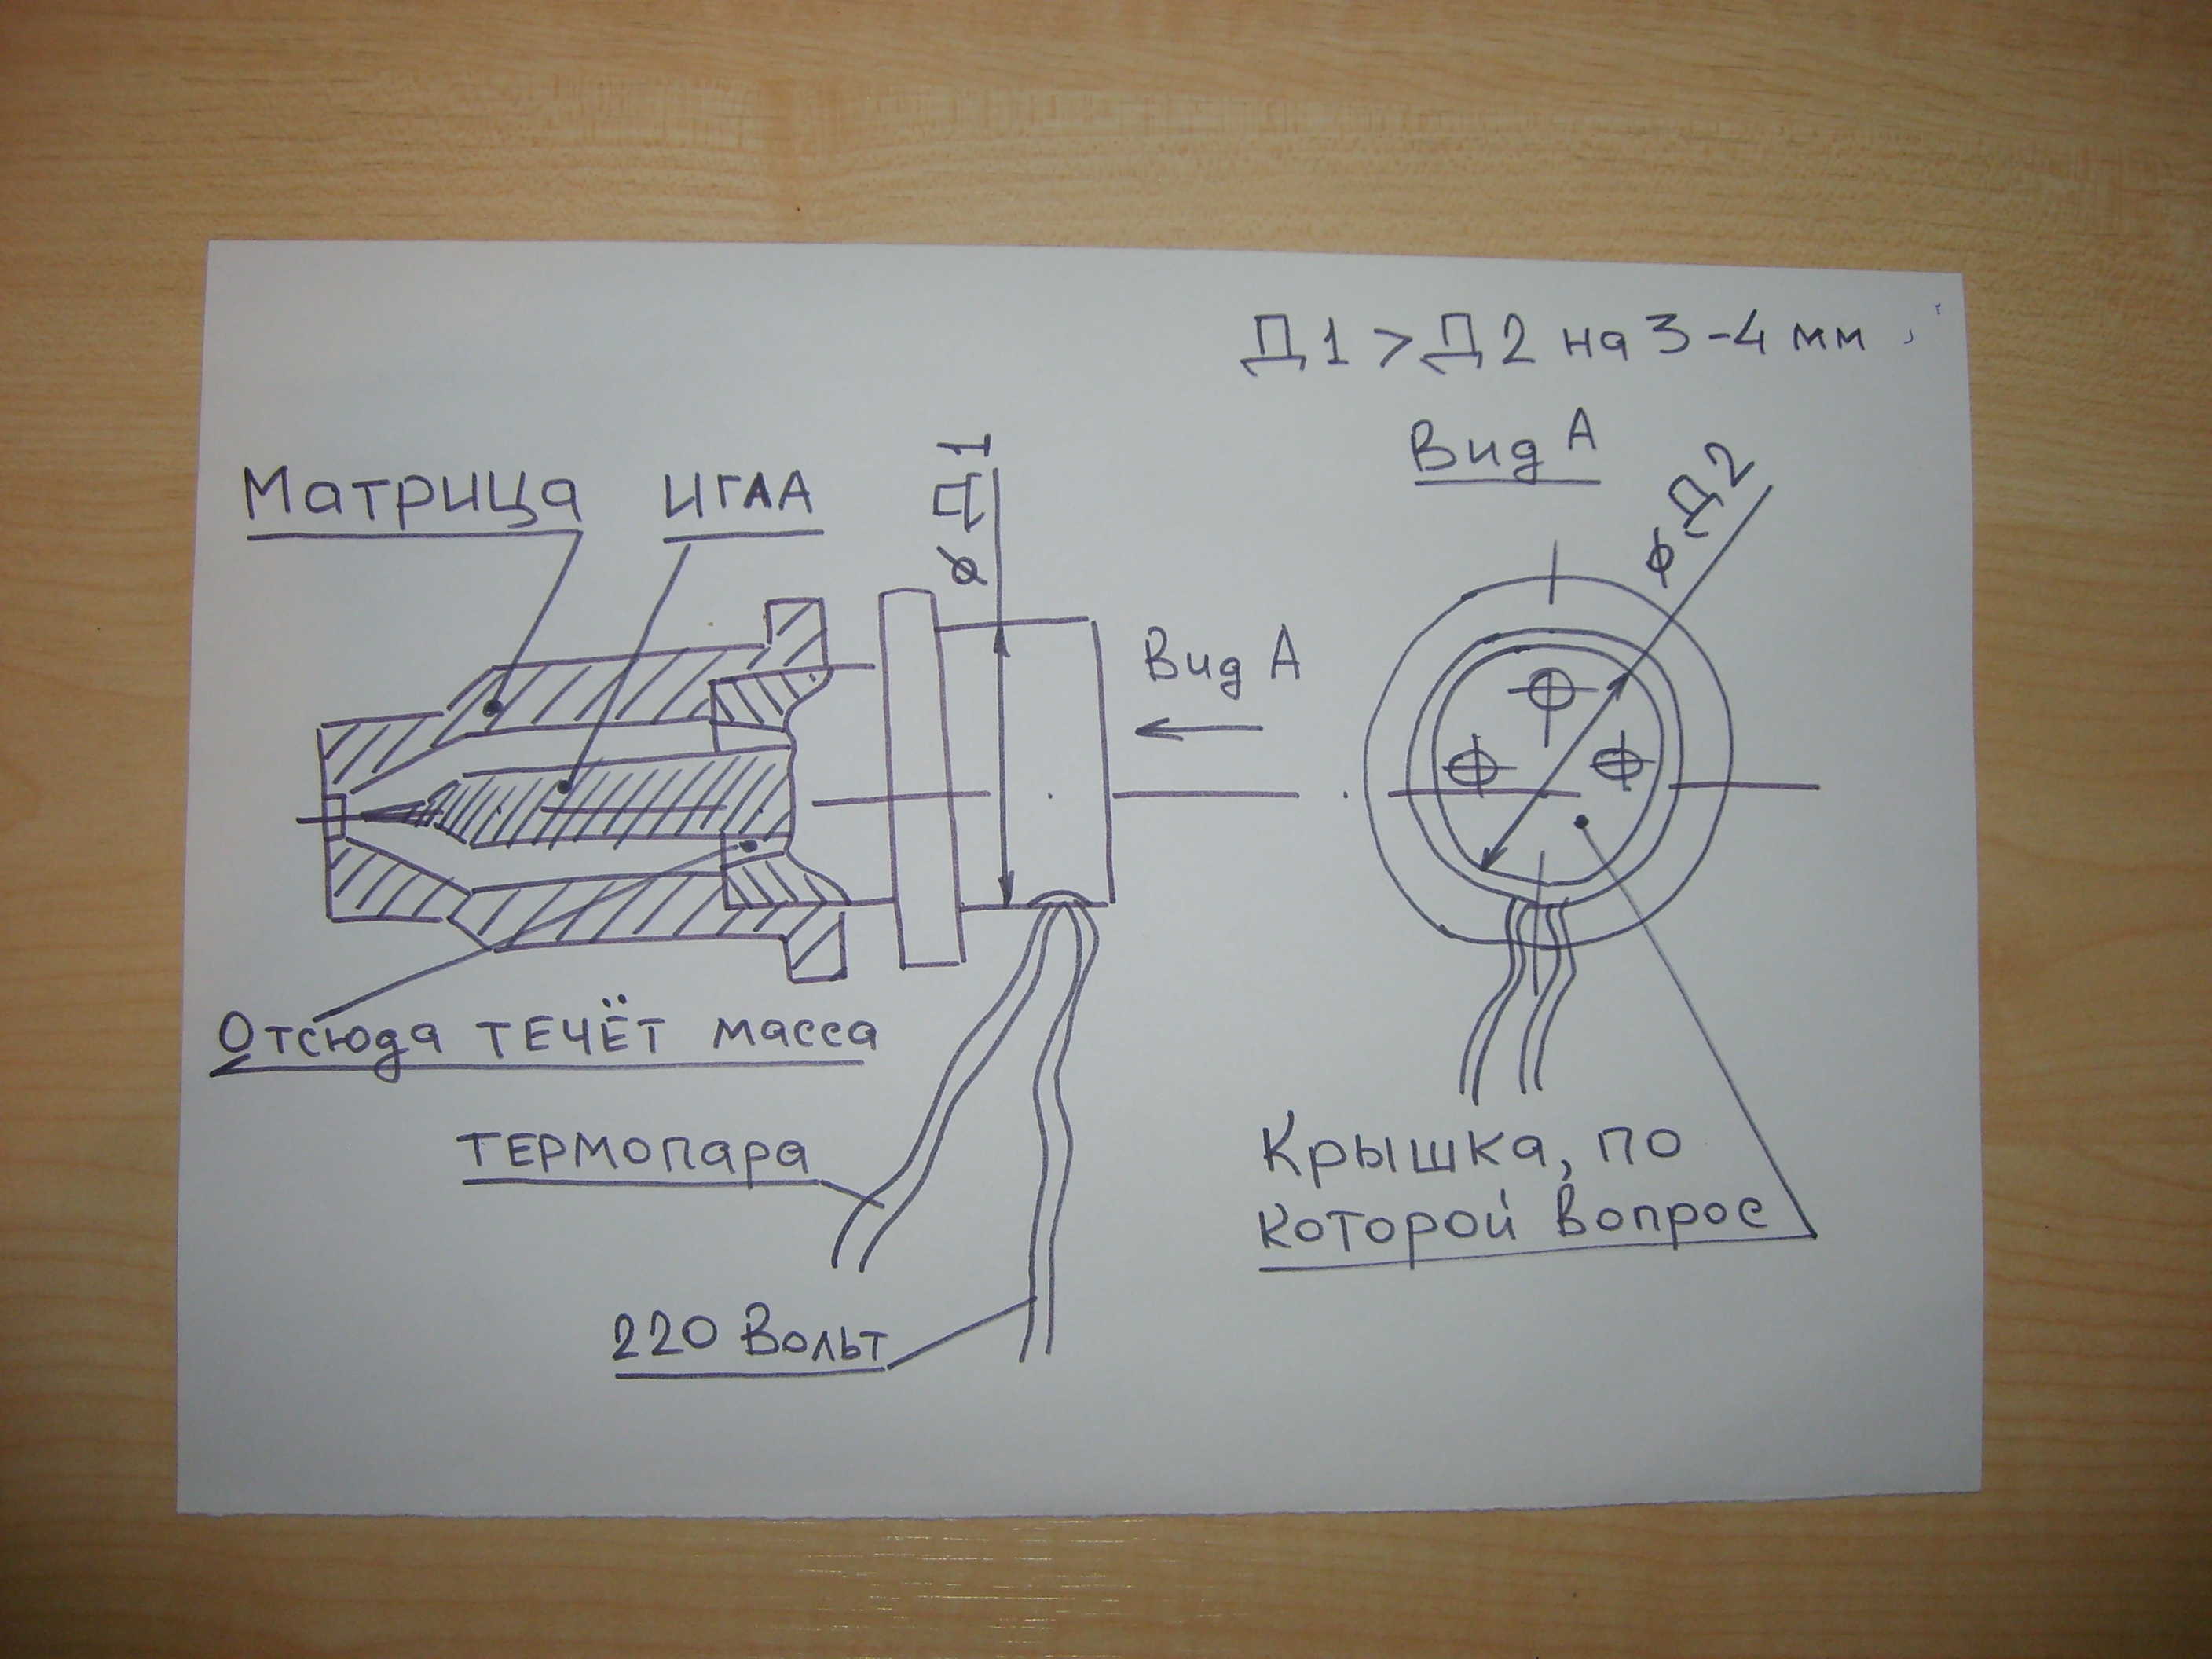 Д1 > Д2 на 3-4 мм
Вид А
φ Д2
Матрица
ИГЛА
φ Д1
Вид А
Отсюда ТЕЧЁТ масса
ТЕРМОПАРА
220 Вольт
Крышка, по
которой вопрос